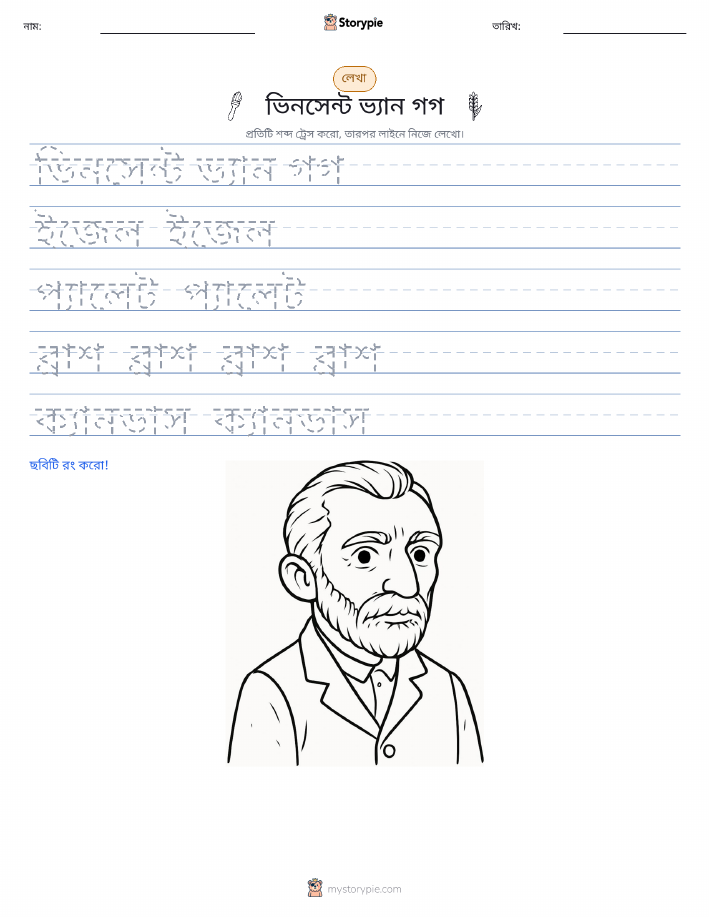 নাম:
Storypie
তারিখ:
লেখা
ভিনসেন্ট ভ্যান গগ
প্রতিটি শব্দ ট্রেস করো, তারপর লাইনে নিজে লেখো।
ভিনসেন্ট ভ্যান গগ
ইজেল ইজেল
প্যালেট প্যালেট
ব্রাশ ব্রাশ ব্রাশ ব্রাশ
ক্যানভাস ক্যানভাস
ছবিটি রং করো!
mystorypie.com